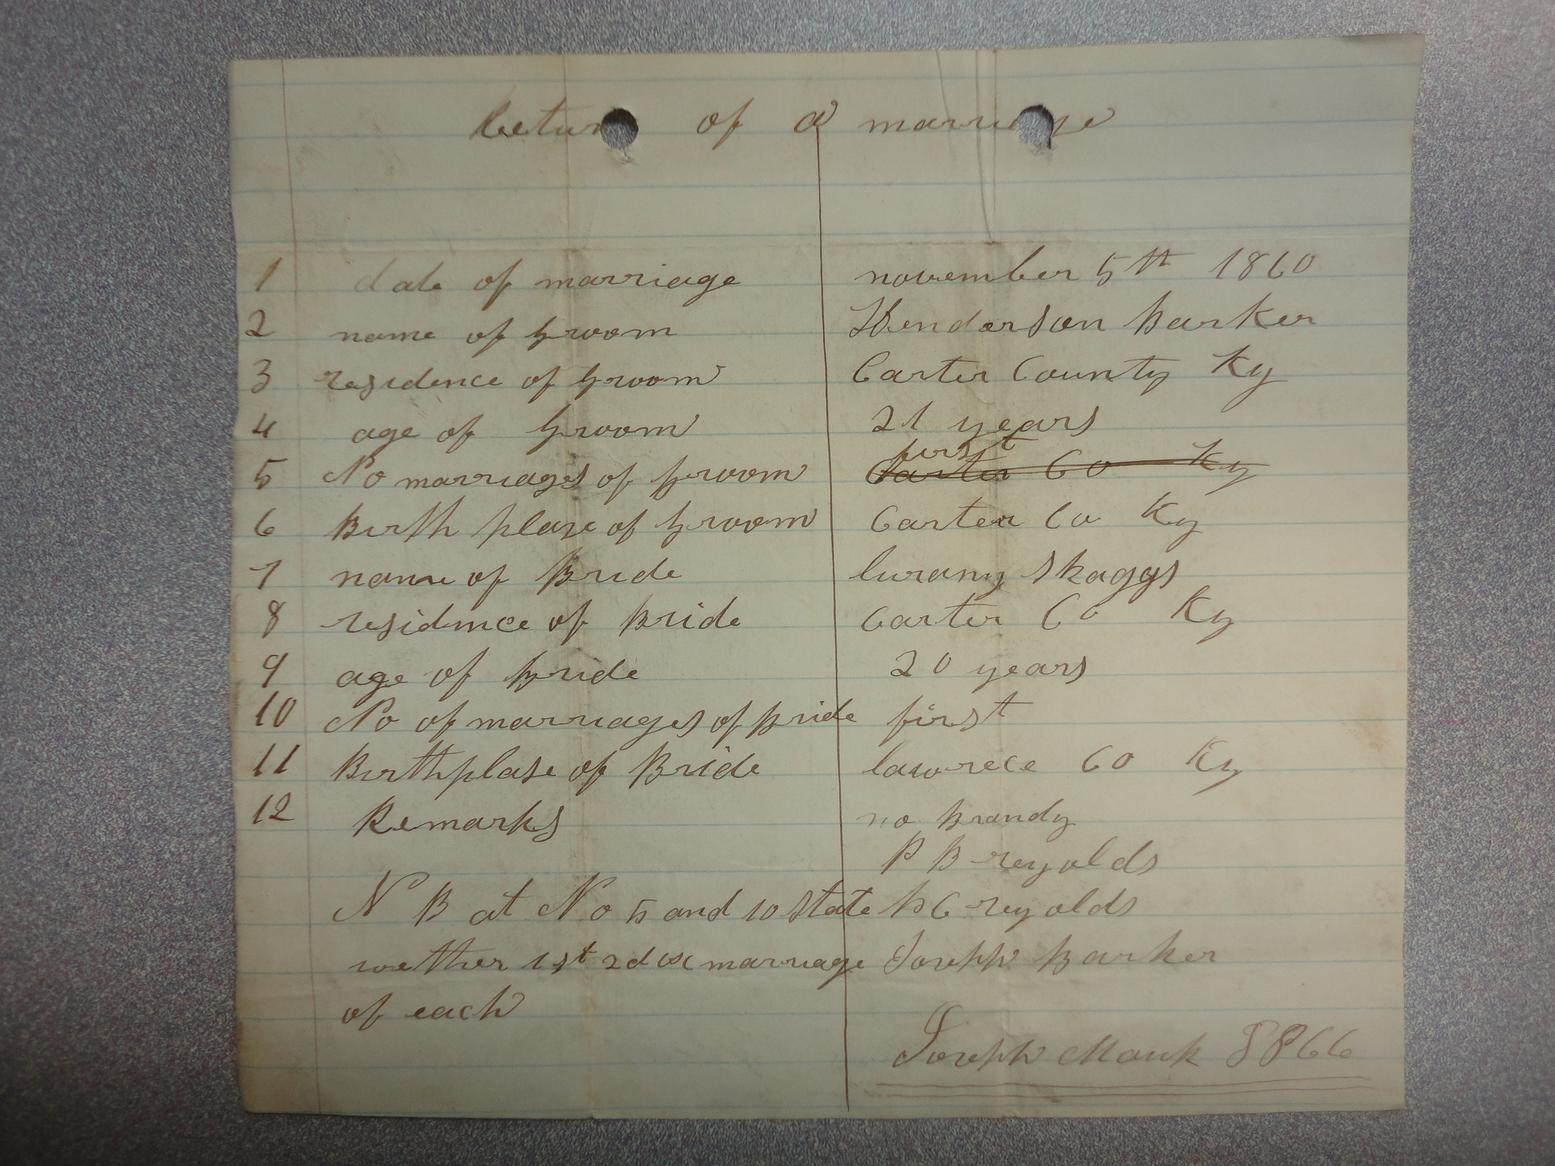 Return of a marriage
1 date of marriage november 5th 1860
2 name of groom Henderson Barker
3 residence of groom Carter County Ky
4 age of groom 21 years
first
5 No marriages of groom Carter Co Ky
6 Birth plase of groom Carter Co Ky
7 name of Bride lurany Skaggs
8 residence of Bride Carter Co Ky
9 age of bride 20 years
10 No of marriages of bride first
11 Birthplase of Bride lawrece Co Ky
12 Remarks no Brandy
P B reyolds
N B at No 5 and 10 state reyolds
wether 1st 2d &c marriage Joseph Barker
of each
Joseph Mauk